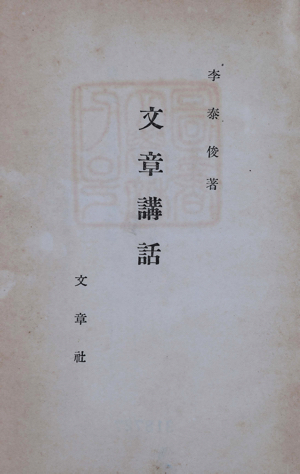 李泰俊著
文章講話
文章社